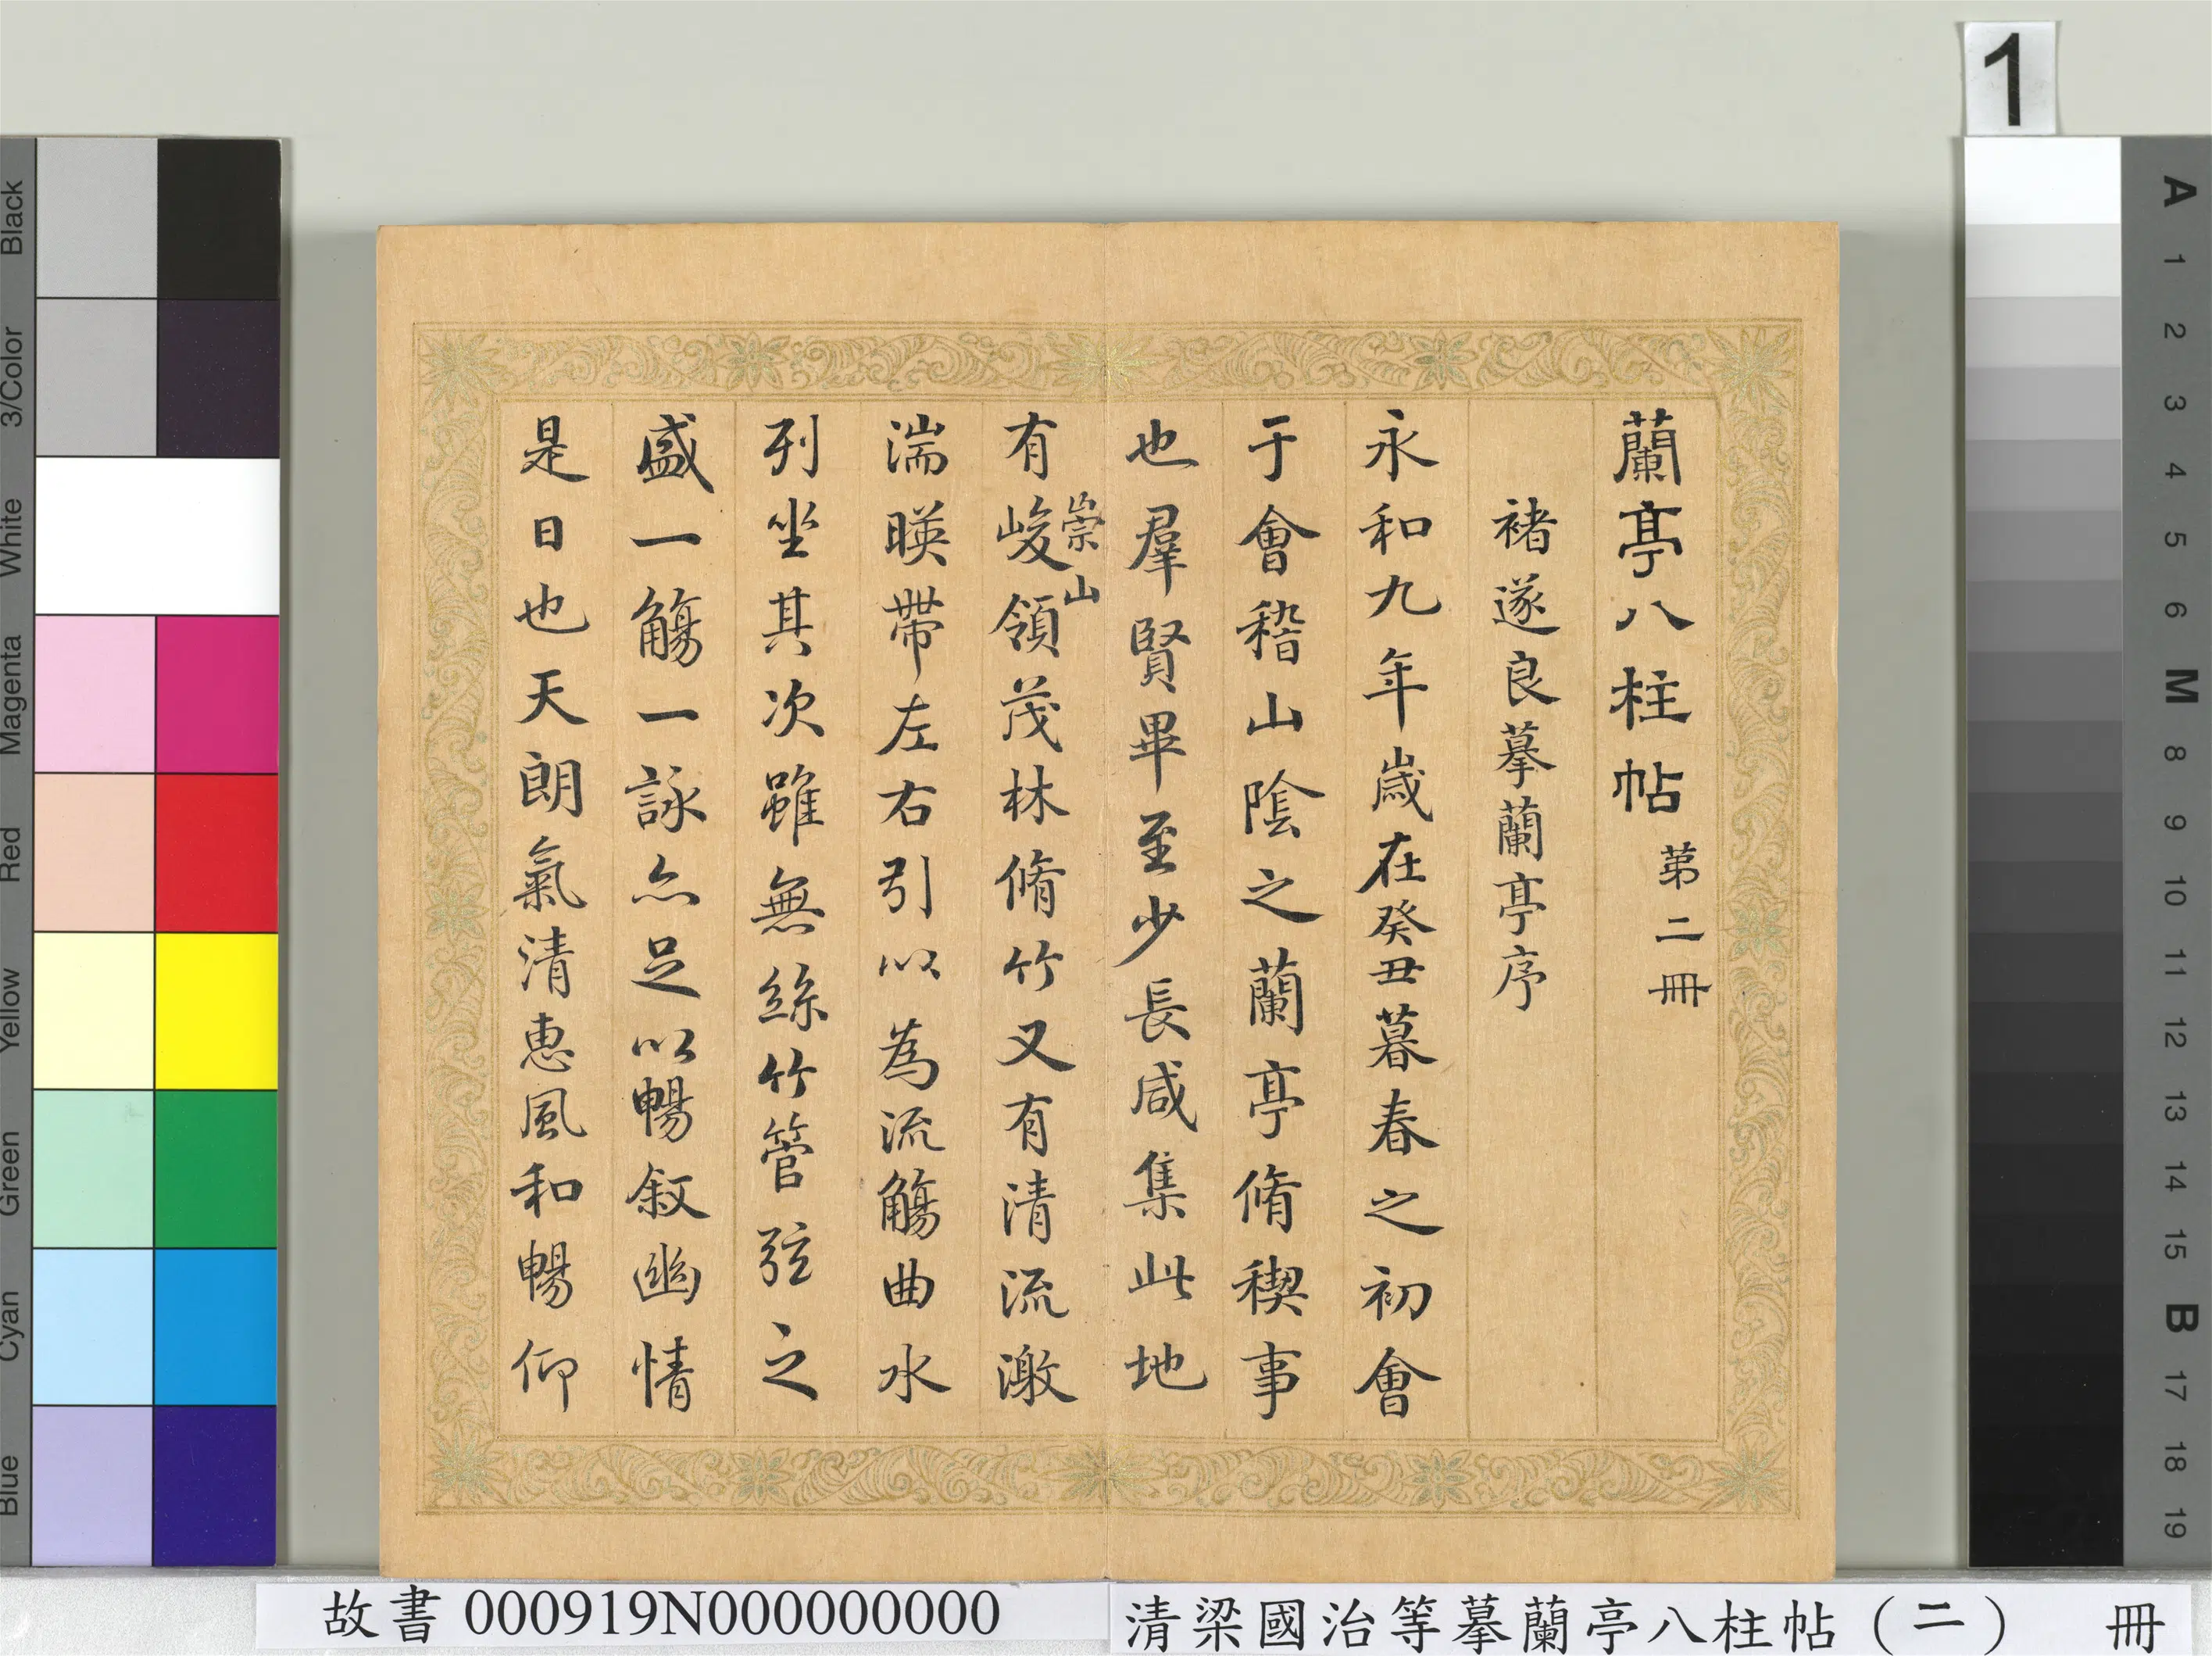 1
蘭亭八柱帖 第二冊
褚遂良摹蘭亭序
永和九年歲在癸丑暮春之初會
于會稽山陰之蘭亭脩稧事
也羣賢畢至少長咸集此地
崇山
有峻領茂林脩竹又有清流激
湍暎帶左右引以為流觴曲水
列坐其次雖無絲竹管弦之
盛一觴一詠亦足以暢敘幽情
是日也天朗氣清惠風和暢仰
Black
3/Color
White
Magenta
Red
Yellow
Green
Cyan
Blue
A
1
2
3
4
5
6
M
8
9
10
11
12
13
14
15
B
17
18
19
故書 000919N000000000
清梁國治等摹蘭亭八柱帖(二) 冊